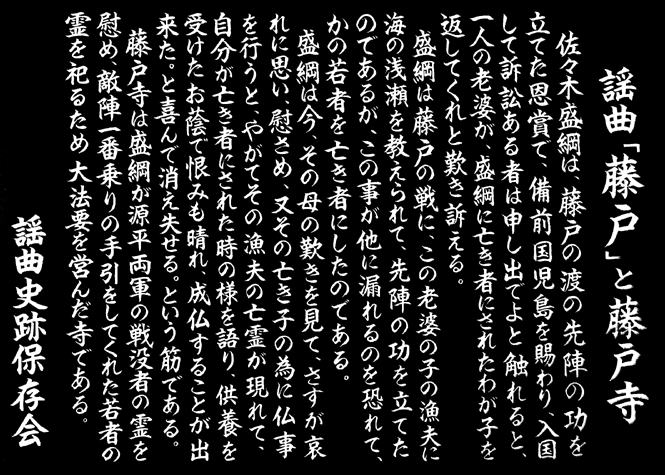 謡曲「藤戸」と藤戸寺
佐々木盛綱は、藤戸の渡の先陣の功を
立てた恩賞で、備前国児島を賜わり、入国
して訴訟ある者は申し出でよと触れると、
一人の老婆が、盛綱に亡き者にされたわが子を
返してくれと歎き訴える。
盛綱は藤戸の戦に、この老婆の子の漁夫に
海の浅瀬を教えられて、先陣の功を立てた
のであるが、この事が他に漏れるのを恐れて、
かの若者を亡き者にしたのである。
盛綱は今、その母の歎きを見て、さすが哀
れに思い、慰さめ、又その亡き子の為に仏事
を行うと、やがてその漁夫の亡霊が現れて、
自分が亡き者にされた時の様を語り、供養を
受けたお蔭で恨みも晴れ、成仏することが出
来た。と喜んで消え失せる。という筋である。
藤戸寺は盛綱が源平両軍の戦没者の霊を
慰め、敵陣一番乗りの手引をしてくれた若者の
霊を祀るため大法要を営んだ寺である。
謡曲史跡保存会